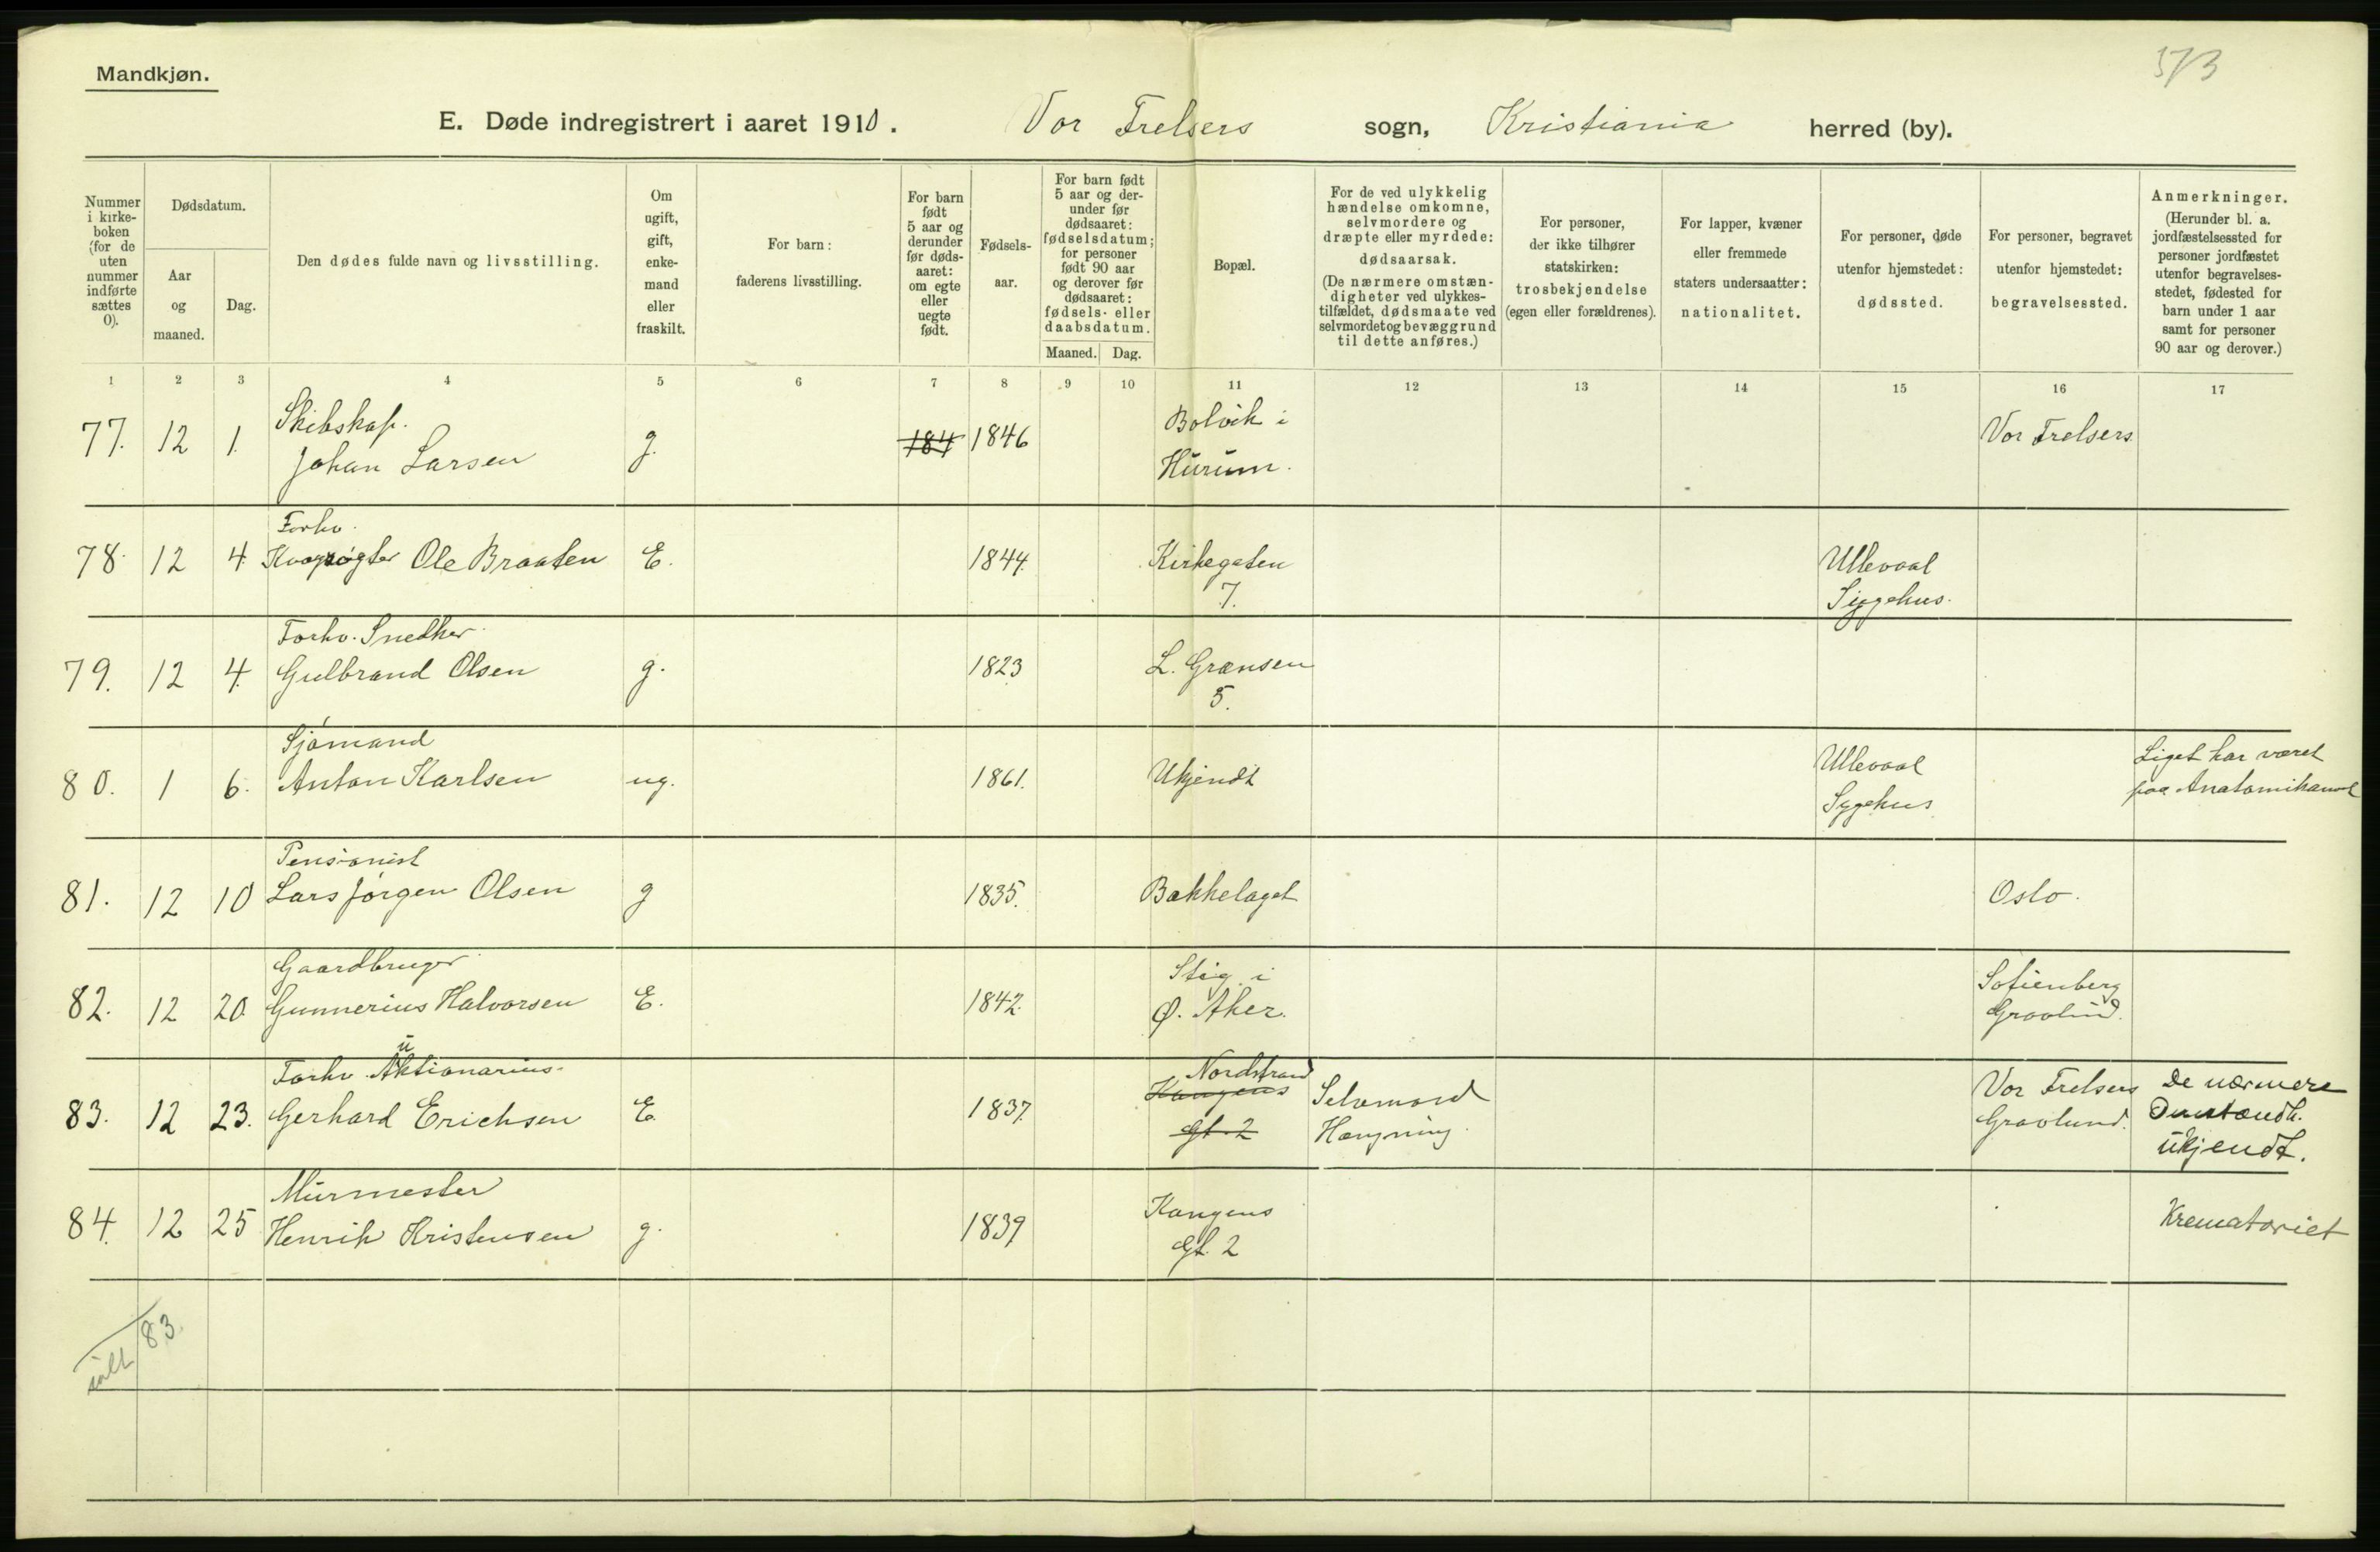 Mandkjøn.
573
E. Døde indregistrert i aaret 1910. Vor Frelsers sogn, Kristiania herred (by).
Nummer i kirke- boken (for de uten nummer indførte sættes 0).
Dødsdatum.
Aar og maaned.
Dag.
Den dødes fulde navn og livsstilling.
Om ugift, gift, enke- mand eller fraskilt.
For barn: faderens livsstilling.
For barn født 5 aar og derunder før døds- aaret: om egte eller uegte født.
Fødsels- aar.
For barn født 5 aar og der- under før dødsaaret: fødselsdatum; for personer født 90 aar og derover før dødsaaret: fødsels- eller daabsdatum.
Maaned. Dag.
Bopæl.
For de ved ulykkelig hændelse omkomne, selvmordere og dræpte eller myrdede: dødsaarsak. (De nærmere omstæn- digheter ved ulykkes- tilfældet, dødsmaate ved selvmord og bevæggrund til dette anføres.)
For personer, der ikke tilhører statskirken: trosbekjendelse (egen eller forældrenes).
For lapper, kvæner eller fremmede staters undersaatter: nationalitet.
For personer, døde utenfor hjemstedet: dødssted.
For personer, begravet utenfor hjemstedet: begravelsessted.
Anmerkninger. (Herunder bl. a. jordfæstelsessted for personer jordfæstet utenfor begravelses- stedet, fødested for barn under 1 aar samt for personer 90 aar og derover.)
1 2 3 4 5 6 7 8 9 10 11 12 13 14 15 16 17
Skibskap. Bolvik i
77. 12 1. Johan Larsen g. 184 1846 Hurum. Vor Frelsers
Forhv.
78. 12 4. Ole Braaten E. 1844. Kirkegaten Ullevaal
7. Sygehus.
Forhv. Snedker
79. 12 4. Gulbrand Olsen g. 1823 L. Grænsen
5.
Sjømand Liget har været
80. 1 6. Anton Karlsen ug. 1861. Ukjendt Ullevaal paa
Sygehus
Pensionist
81. 12 10 Lars Jørgen Olsen g 1835. Bækkelaget Oslo.
Gaardbruger Stig i Sofienberg
82. 12 20. Gunnerius Halvorsen E. 1842. Ø. Aker. Gravlund.
Forhv. Aktionarius. Nordstrand
u
83. 12 23. Gerhard Erichsen E. 1837. Kongens Selvmord Vor Frelsers De nærmere
gt. 2 Hængning. Gravlund. Omstændh.
ukjendt.
Murmester Kongens
84. 12 25 Henrik Kristensen g. 1839 Gt. 2 Krematoriet
ialt 83.